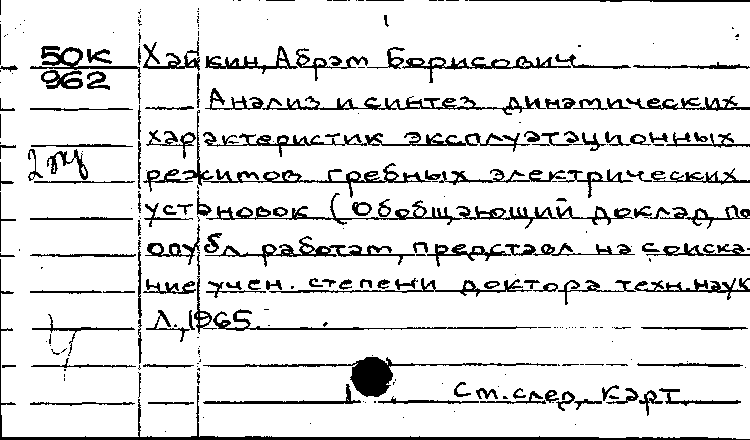 50К Хайкин, Абрам Борисович
962
Анализ и синтез динамических
характеристик эксплуатационных
2 экз
режимов гребных электрических
установок (Обобщающий доклад по
опубл. работам, представл на соиска-
ние учен. степени доктора техн. наук
Л., 1965.
См. след. карт.